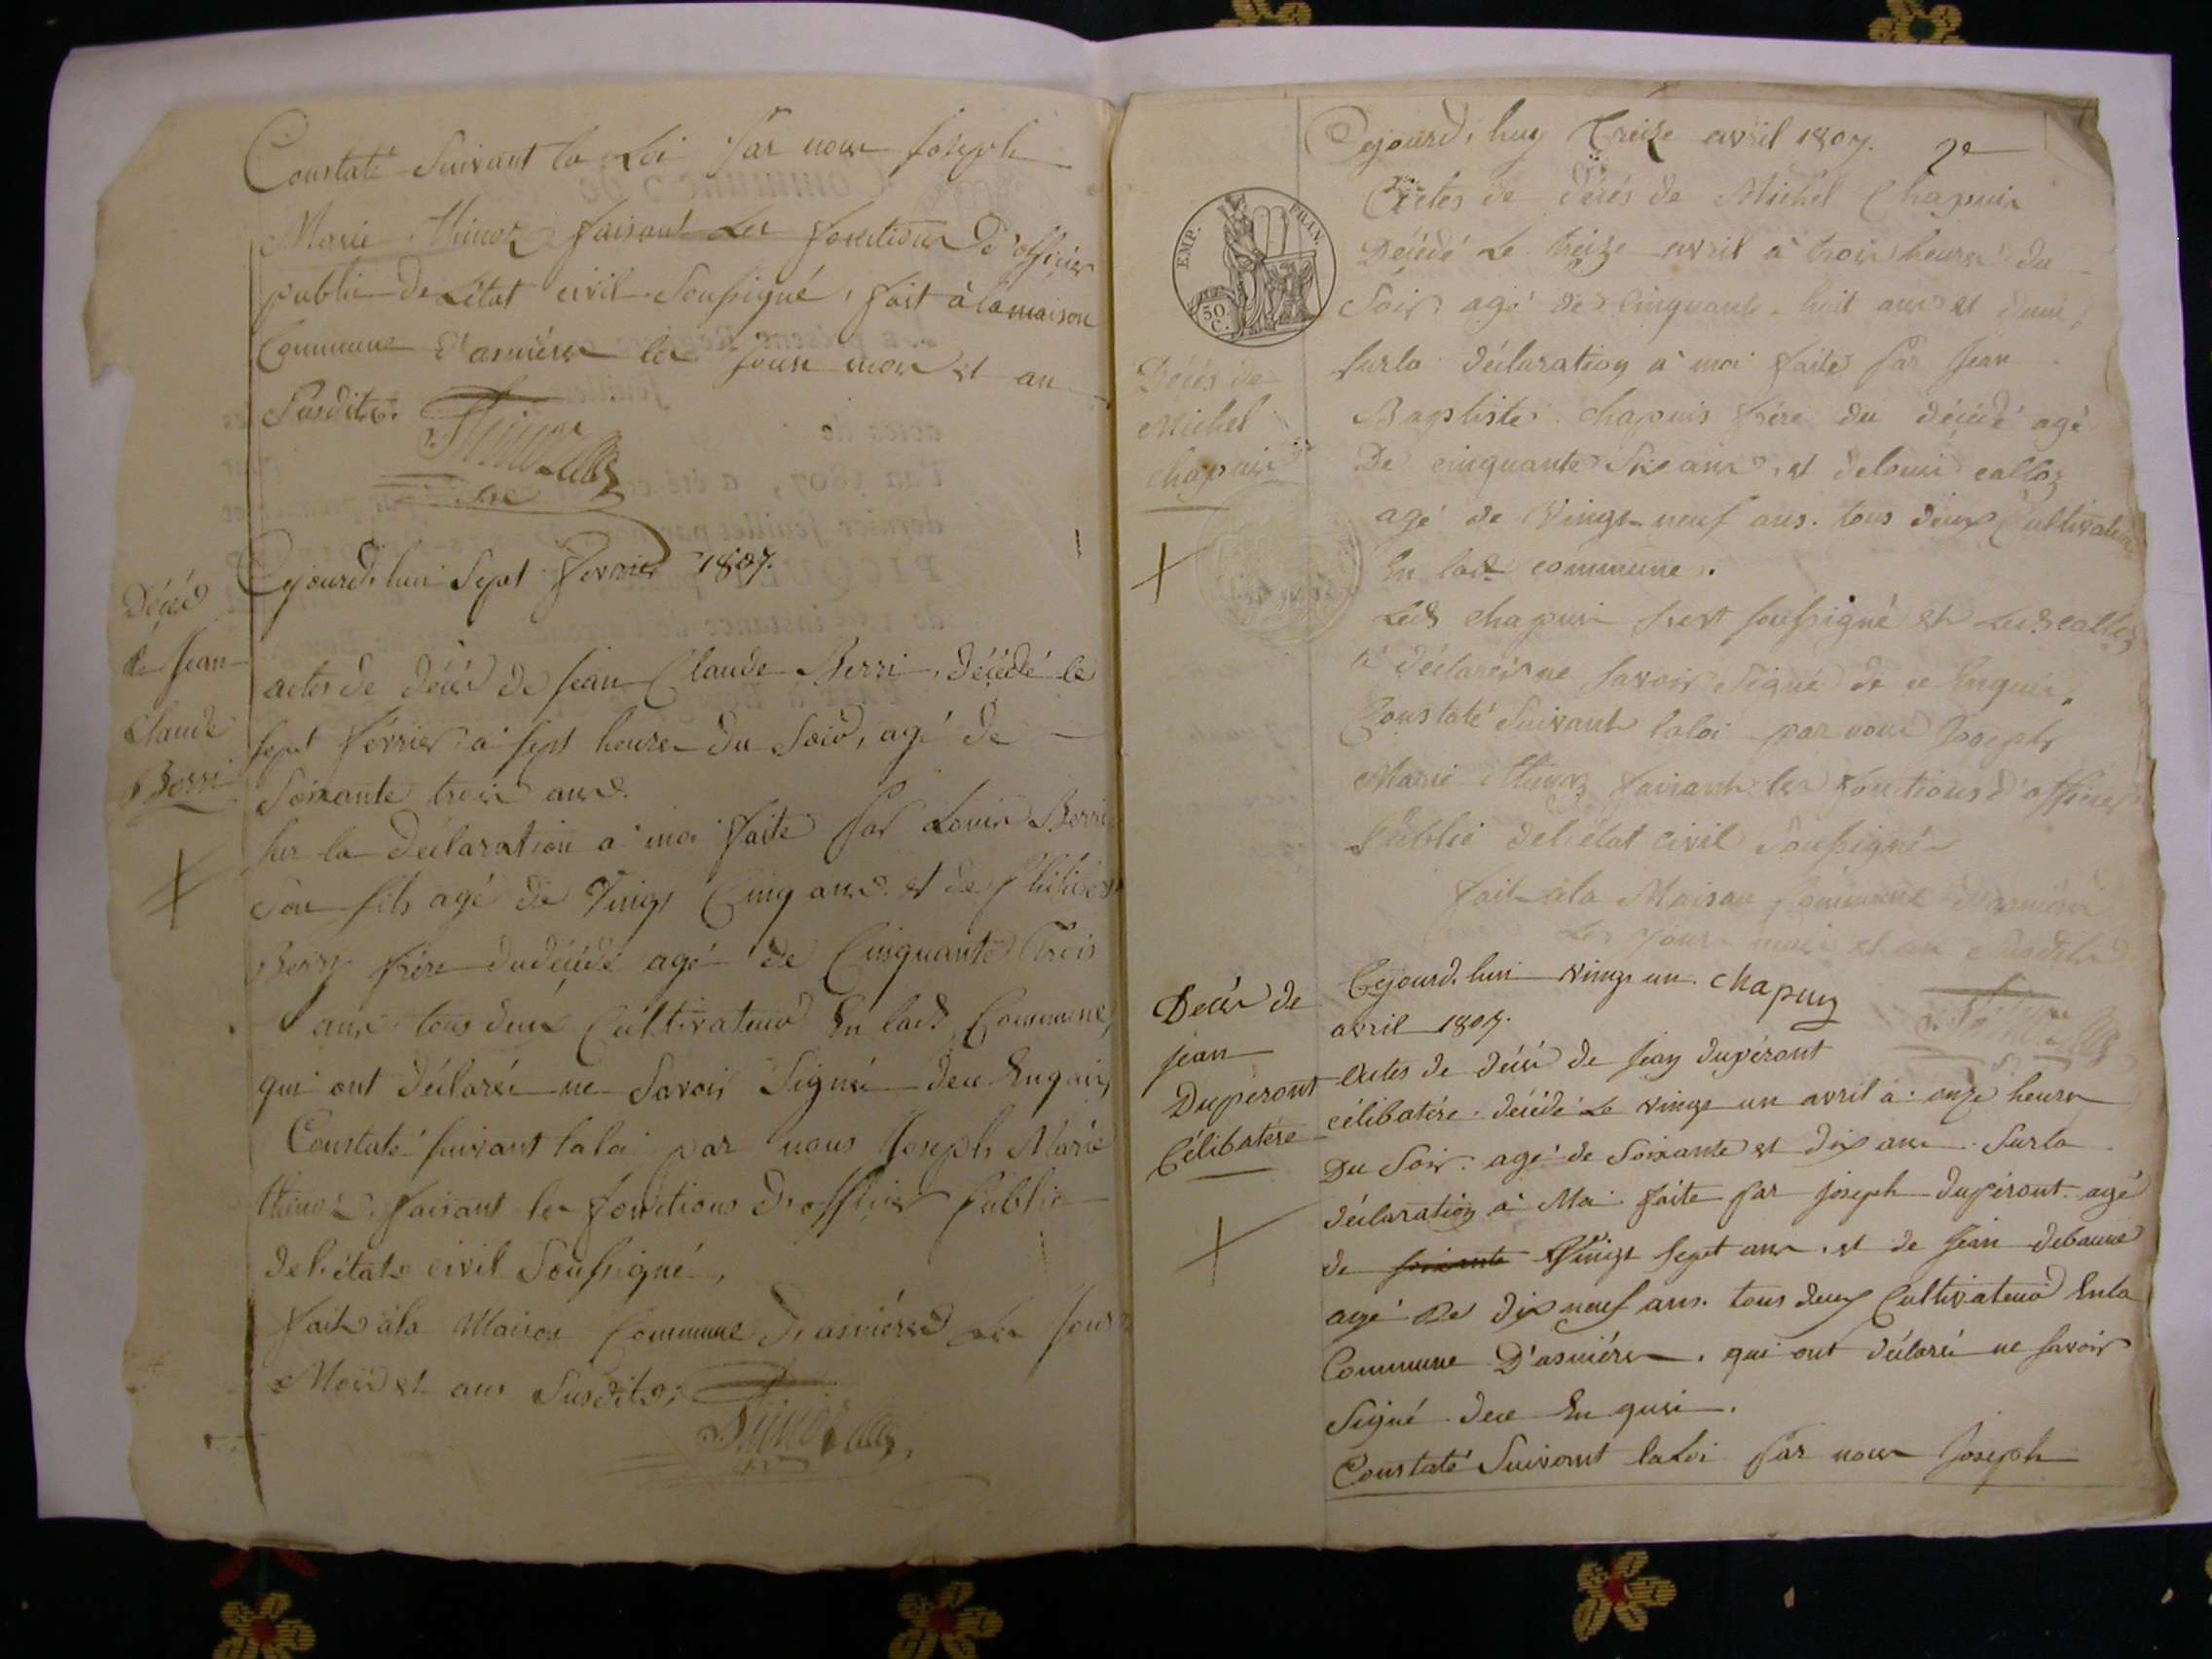 Constaté Suivant la Loi par nous Joseph
Marie Thinoz faisant Les fonctions D'officier
public de L'état civil Soussigné, fait à la maison
Commune D'asnières les jours mois et an
Susdits.
Décés
de Jean
Claude
Berri
Cejourd'hui Sept fevrier 1807.
actes de décès de Jean Claude Berri, décédé le
sept février à sept heures du Soir, agé de
Soixante trois ans.
sur la déclaration a moi faite par Louis Berri
Son fils agé de Vingt Cinq ans et de
Berry frère du décédé agé de Cinquante Trois
ans tous deux Cultivateurs En lad. Commune,
qui ont déclaré ne Savoir Signé de ce Enquis,
Constaté suivant la loi par nous Joseph Marie
thinoz, faisant les fonctions D'officier public
de l'état civil Soussigné,
fait à la Maison Commune D'asnières Les Jours
Mois et ans Susdits,
Cejourd'huy Treize avril 1807. 2e
EMP. FRAN.
50
C.
Décés de
Michel
chapuis
Actes de décés de Michel Chapuis
Décédé Le treize avril à trois heures du
Soir agé de Cinquante huit ans et demi,
sur la déclaration a moi faite par Jean
Baptiste chapuis frère du décédé agé
De cinquante Six ans, et de Louis calloz
agé de Vingt neuf ans. tous deux Cultivateurs
En lad. commune.
Led. chapuis s'est soussigné et Led. calloz
a déclaré ne savoir Signé de ce Enquis,
Constaté Suivant la loi par nous Joseph
Marie Thinoz faisant les fonctions d'officier
Public de l'état civil Soussigné
fait à la Maison Commune D'asnières
Les jours mois et an Susdits
chapuy
Decés de
jean
Duperont
Célibatére
Cejourd'hui vingt un
avril 1807.
Actes de décés de Jean dupéront
célibatére décédé Le vingt un avril à onze heures
Du Soir. agé de Soixante et dix ans. Sur la
déclaration à Moi faite par joseph dupéront agé
de soixante Vingt Sept ans, et de Jean debaune
agé De dix neuf ans. tous deux Cultivateurs En la
Commune D'asnières. qui ont déclaré ne savoir
Signé de ce Enquis.
Constaté Suivant la Loi par nous Joseph